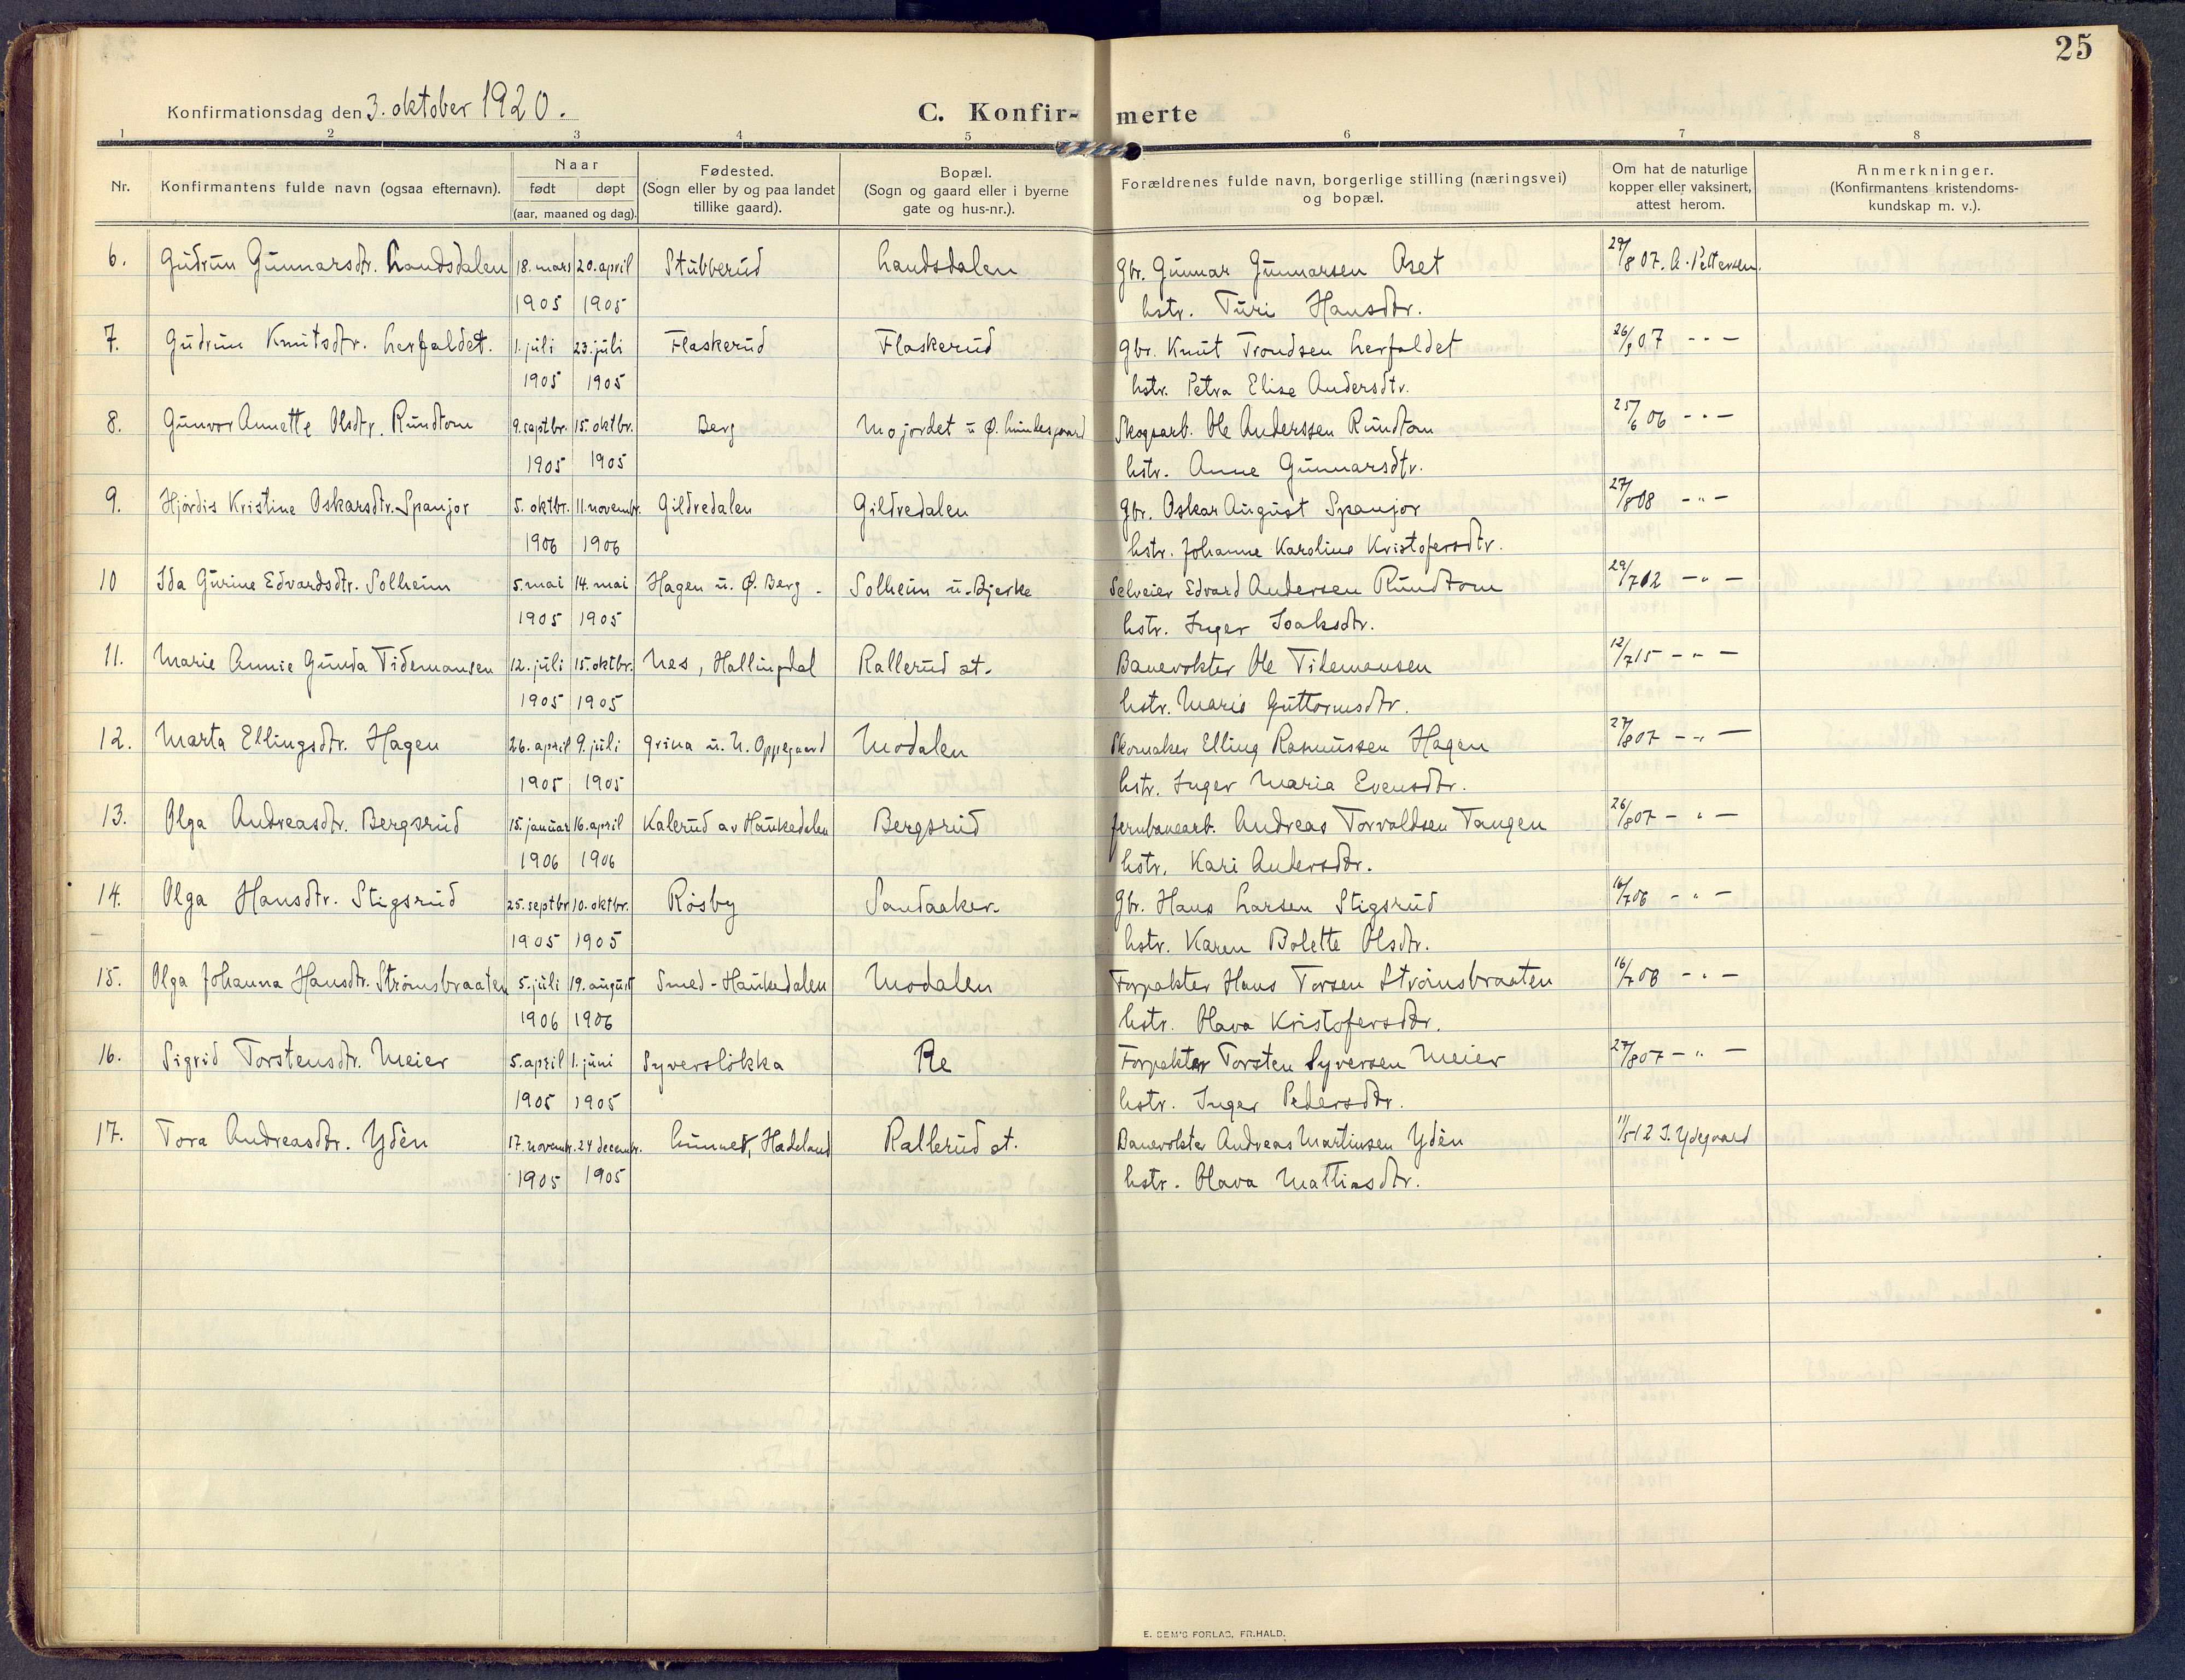 25
Konfirmationsdag den 3. oktober 1920.
C. Konfir- merte
1 2 3 4 5 6 7 8
Nr.
Konfirmantens fulde navn (ogsaa efternavn).
Naar
født døpt
(aar, maaned og dag).
Fødested.
(Sogn eller by og paa landet
tillike gaard).
Bopæl.
(Sogn og gaard eller i byerne
gate og hus-nr.).
Forældrenes fulde navn, borgerlige stilling (næringsvei)
og bopæl.
Om hat de naturlige
kopper eller vaksinert,
attest herom.
Anmerkninger.
(Konfirmantens kristendoms-
kundskap m. v.).
6. Gudrun Gunnarsdtr. Landsdalen 18. mars 20. april Stubberud Landsdalen Gbr. Gunnar Gunnarsen Aset 29/8 07. A. Pettersen.
1905 1905 hstr. Turi Hansdtr.
7. Gudrun Knutsdtr. Lerfaldet. 1. juli 23. juli Flaskerud Flaskerud Gbr. Knut Trondsen Lerfaldet 26/8 07 - " -
1905 1905 hstr. Petra Elise Andersdtr.
8. Gunvor Annette Olsdtr. Rundtom 9. septbr. 15. oktbr. Berg Mojordet u. Ø. Lundesgaard Skogsarb. Ole Anderssen Rundtom 25/6 06 - " -
1905 1905 hstr. Anne Gunnarsdtr.
9. Hjørdis Kristine Oskarsdtr. Spanjor 5. oktbr. 11. novembr. Gildredalen Gildredalen Gbr. Oskar August Spanjor 27/8 08 - " -
1906 1906 hstr. Johanne Karoline Kristofersdtr.
10 Ida Gurine Edvardsdtr. Solheim 5. mai 14. mai Hagen u. Ø. Berg. Solheim u. Bjerke Selveier Edvard Andersen Rundtom 29/7 12 - " -
1905 1905 hstr. Inger Isaksdtr.
11. Marie Annie Gunda Tidemansen 12. juli 15. oktbr. Nes, Hallingdal Rallerud st. Banevokter Ole Tidemansen 12/7 15 - " -
1905 1905 hstr. Marie Guttormsdtr.
12. Marta Ellingsdtr. Hagen 26. april 9. juli Grina u. N. Oppegaard Modalen Skomaker Elling Rasmussen Hagen 27/8 07 - " -
1905 1905 hstr. Inger Maria Evensdtr.
13. Olga Andreasdtr. Bergsrud 15. januar 16. april Kalerud av Haukedalen Bergsrud Jernbanearb. Andreas Torvaldsen Tangen 26/8 07 - " -
1906 1906 hstr. Kari Andersdtr.
14. Olga Hansdtr. Stigsrud 25. septbr 10. oktbr. Røsby Sandaaker. Gbr. Hans Larsen Stigsrud 16/7 06 - " -
1905 1905 hstr. Karen Bolette Olsdtr.
15. Olga Johanna Hansdtr. Strømsbraaten 5. juli 19. august Smed-Haukedalen Modalen Forpakter Hans Torsen Strømsbraaten 16/7 08 - " -
1906 1906 hstr. Olava Kristofersdtr.
16. Sigrid Torstensdtr. Meier 5. april 1. juni Syversløkka Re Forpakter Torsten Syversen Meier 27/8 07 - " -
1905 1905 hstr. Inger Pedersdtr.
17. Tora Andreasdtr. Ydèn 17. novembr. 24 decembr. Lunner, Hadeland Rallerud st. Banevokter Andreas Martinsen Ydèn 11/5 12 J. Ydegaard
1905 1905 hstr. Olava Mattiasdtr.
E. SEM'S FORLAG, FR.HALD.